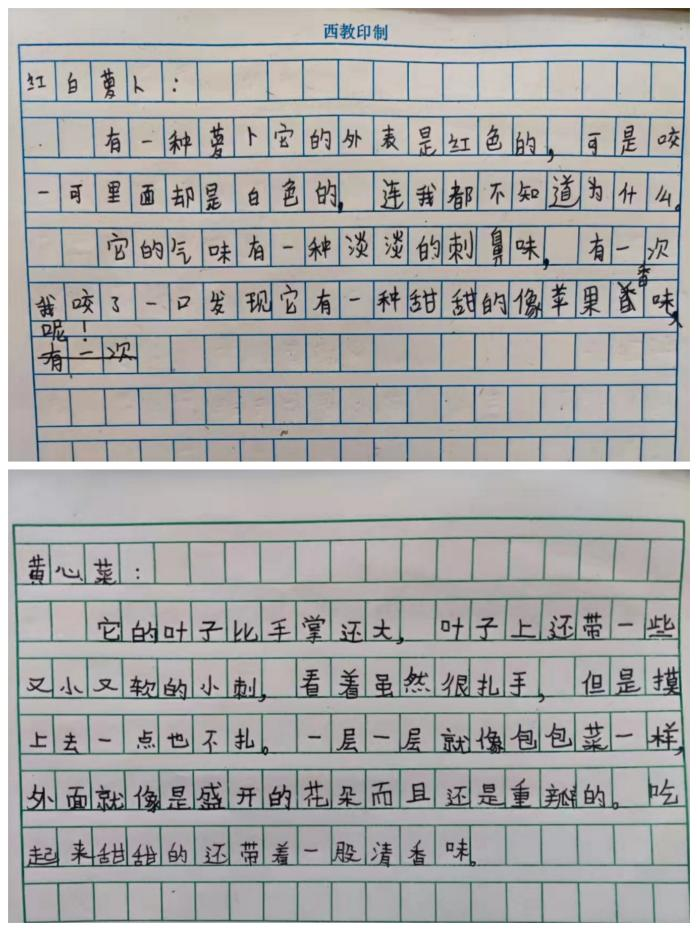 西教印制
红白萝卜：
有一种萝卜它的外表是红色的，可是咬
一可里面却是白色的，连我都不知道为什么。
它的气味有一种淡淡的刺鼻味，有一次
我咬了一口发现它有一种甜甜的像苹果香味，
呢！
有一次
黄心菜：
它的叶子比手掌还大，叶子上还带一些
又小又软的小刺，看着虽然很扎手，但是摸
上去一点也不扎。一层一层就像包包菜一样，
外面就像是盛开的花朵而且还是重瓣的。吃
起来甜甜的还带着一股清香味。